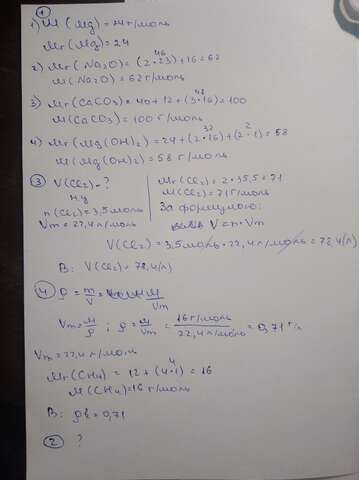 ①
1) M (Mg) = 24 г/моль
Mr (Mg) = 24
2) Mr (Na2O) = (2·23) 46 + 16 = 62
M (Na2O) = 62 г/моль
3) Mr (CaCO3) = 40 + 12 + (3·16) 48 = 100
M (CaCO3) = 100 г/моль
4) Mr (Mg(OH)2) = 24 + (2·16) 32 + (2·1) 2 = 58
M (Mg(OH)2) = 58 г/моль
③ V(Cl2) - ?
н.у
n (Cl2) = 3,5 моль
Vm = 22,4 л/моль
Mr (Cl2) = 2·35,5 = 71
M (Cl2) = 71 г/моль
За формулою:
V = n·Vm
V (Cl2) = 3,5 моль · 22,4 л/моль = 78,4 (л)
В: V (Cl2) = 78,4 (л)
④ ρ = m/V = M/Vm
Vm = M/ρ ; ρ = M/Vm = 16 г/моль / 22,4 л/моль = 0,71 г/л
Vm = 22,4 л/моль
Mr (CH4) = 12 + (4·1) 4 = 16
M (CH4) = 16 г/моль
В: = 0,71
② ?